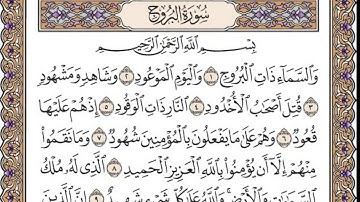 سُورَةُ البُرُوجِ
بِسْمِ اللَّهِ الرَّحْمَٰنِ الرَّحِيمِ
وَالسَّمَاءِ ذَاتِ الْبُرُوجِ ١ وَالْيَوْمِ الْمَوْعُودِ ٢ وَشَاهِدٍ وَمَشْهُودٍ
٣ قُتِلَ أَصْحَابُ الْأُخْدُودِ ٤ النَّارِ ذَاتِ الْوَقُودِ ٥ إِذْ هُمْ عَلَيْهَا
قُعُودٌ ٦ وَهُمْ عَلَىٰ مَا يَفْعَلُونَ بِالْمُؤْمِنِينَ شُهُودٌ ٧ وَمَا نَقَمُوا
مِنْهُمْ إِلَّا أَن يُؤْمِنُوا بِاللَّهِ الْعَزِيزِ الْحَمِيدِ ٨ الَّذِي لَهُ مُلْكُ
السَّمَاوَاتِ وَالْأَرْضِ وَاللَّهُ عَلَىٰ كُلِّ شَيْءٍ شَهِيدٌ ٩ إِنَّ الَّذِينَ